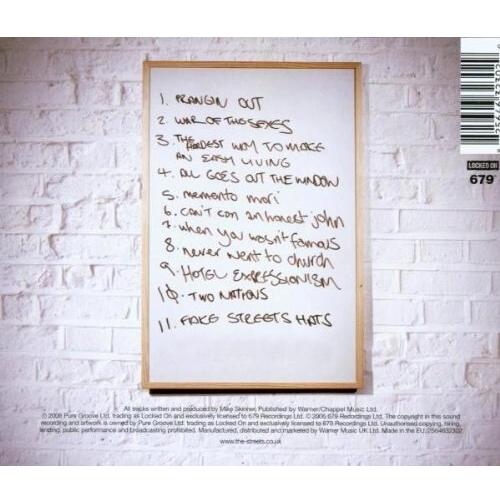 1. PRANGIN OUT
2. WAR OF THE SEXES
3. THE HARDEST WAY TO MAKE
AN EASY LIVING
4. ALL GOES OUT THE WINDOW
5. memento mori
6. can't con an honest john
7. when you wasn't famous
8. never went to church
9. HOTEL EXPRESSIONISM
10. TWO NATIONS
11. FAKE STREETS HATS
LOCKED ON
679
All tracks written and produced by Mike Skinner, Published by Warner/Chappel Music Ltd.
© 2006 Pure Groove Ltd. trading as Locked On and exclusively licensed to 679 Recordings Ltd. © 2006 679 Recordings Ltd. The copyright in this sound
recording and artwork is owned by Pure Groove Ltd. trading as Locked On and exclusively licensed to 679 Recordings Ltd. Unauthorised copying, hiring,
lending, public performance and broadcasting prohibited. Manufactured, distributed and marketed by Warner Music UK Ltd. Made in EU.
www.the-streets.co.uk